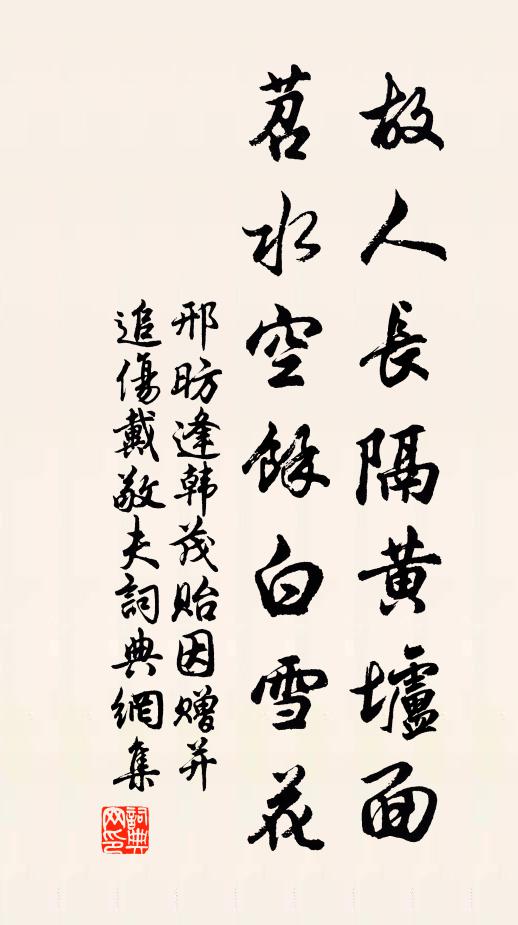 故人長隔黃壚面
苕水空餘白雪花
邢昉逢韩茂貽因赠并
追傷戴敬夫詞典網集
詞典
网印